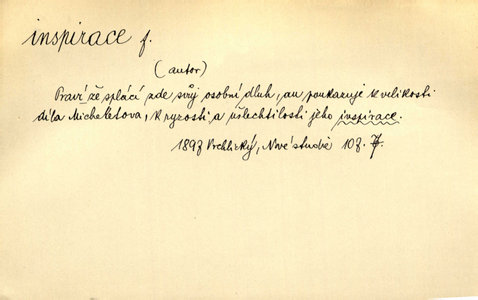 inspirace f.
(autor)
Praví že splácí zde svůj osobní dluh, an poukazuje k velikosti
díla Micheletova, k ryzosti a ušlechtilosti jeho inspirace.
1897 Vrchlický, Nové studie 107.